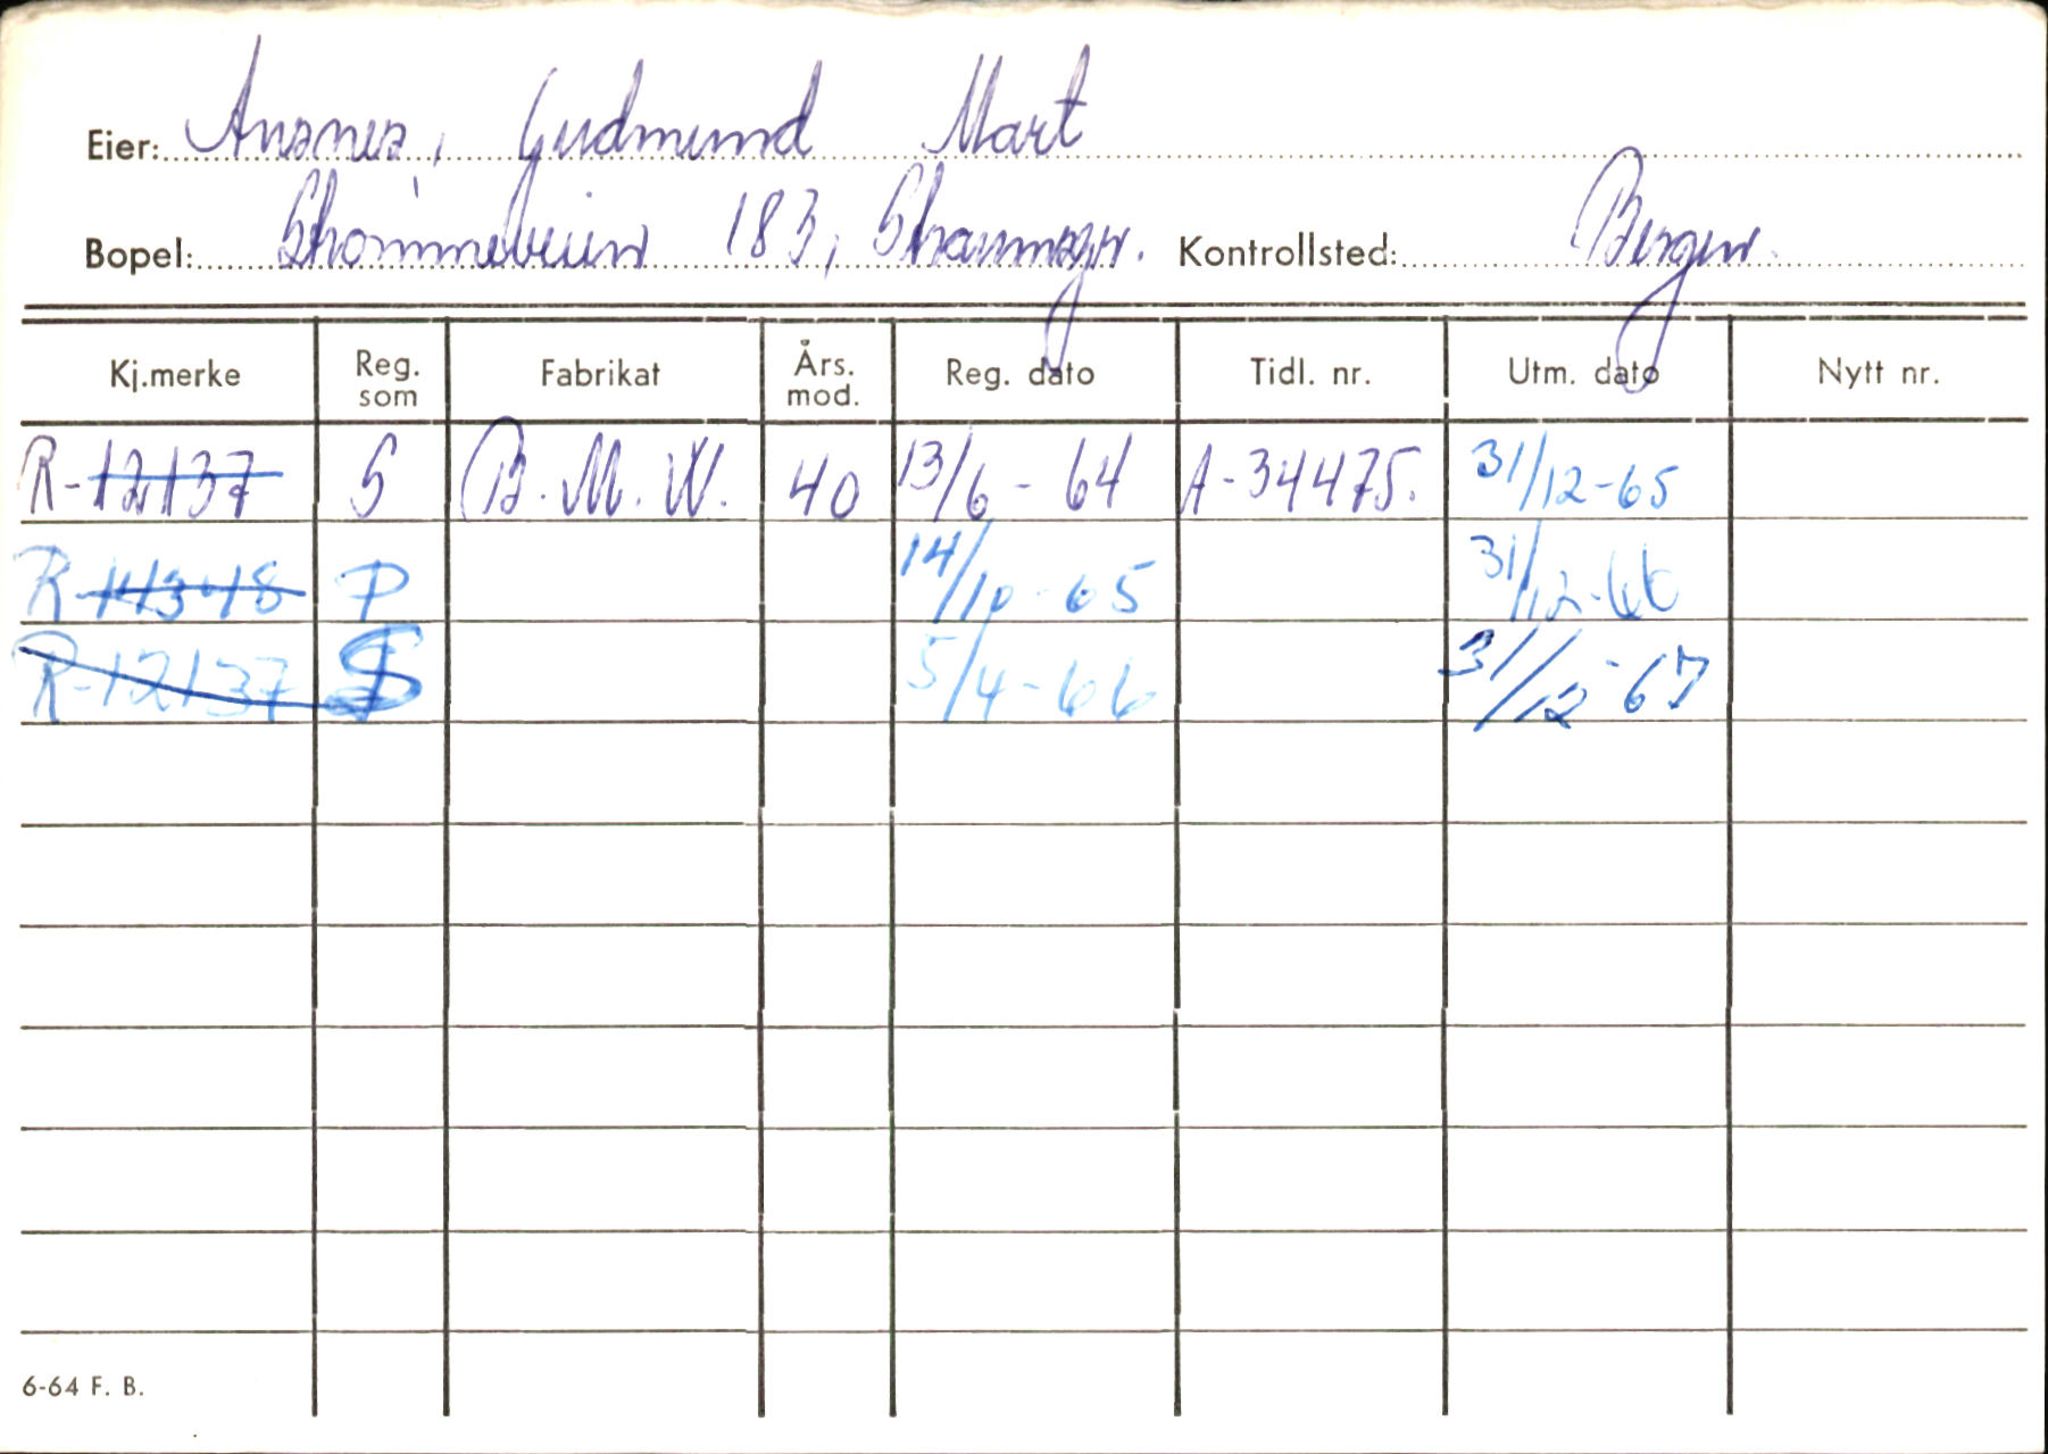 Eier: Gudmund Mart
Bopel: 183, Kontrollsted: Bergen.
Kj.merke Reg. som Fabrikat Års. mod. Reg. dato Tidl. nr. Utm. dato Nytt nr.
R-12137 S B.M.W. 40 13/6-64 A-34475. 31/12-65
R- P 14/10-65 31/12-66
R-12137 S 5/4-66 31/12-67
6-64 F. B.